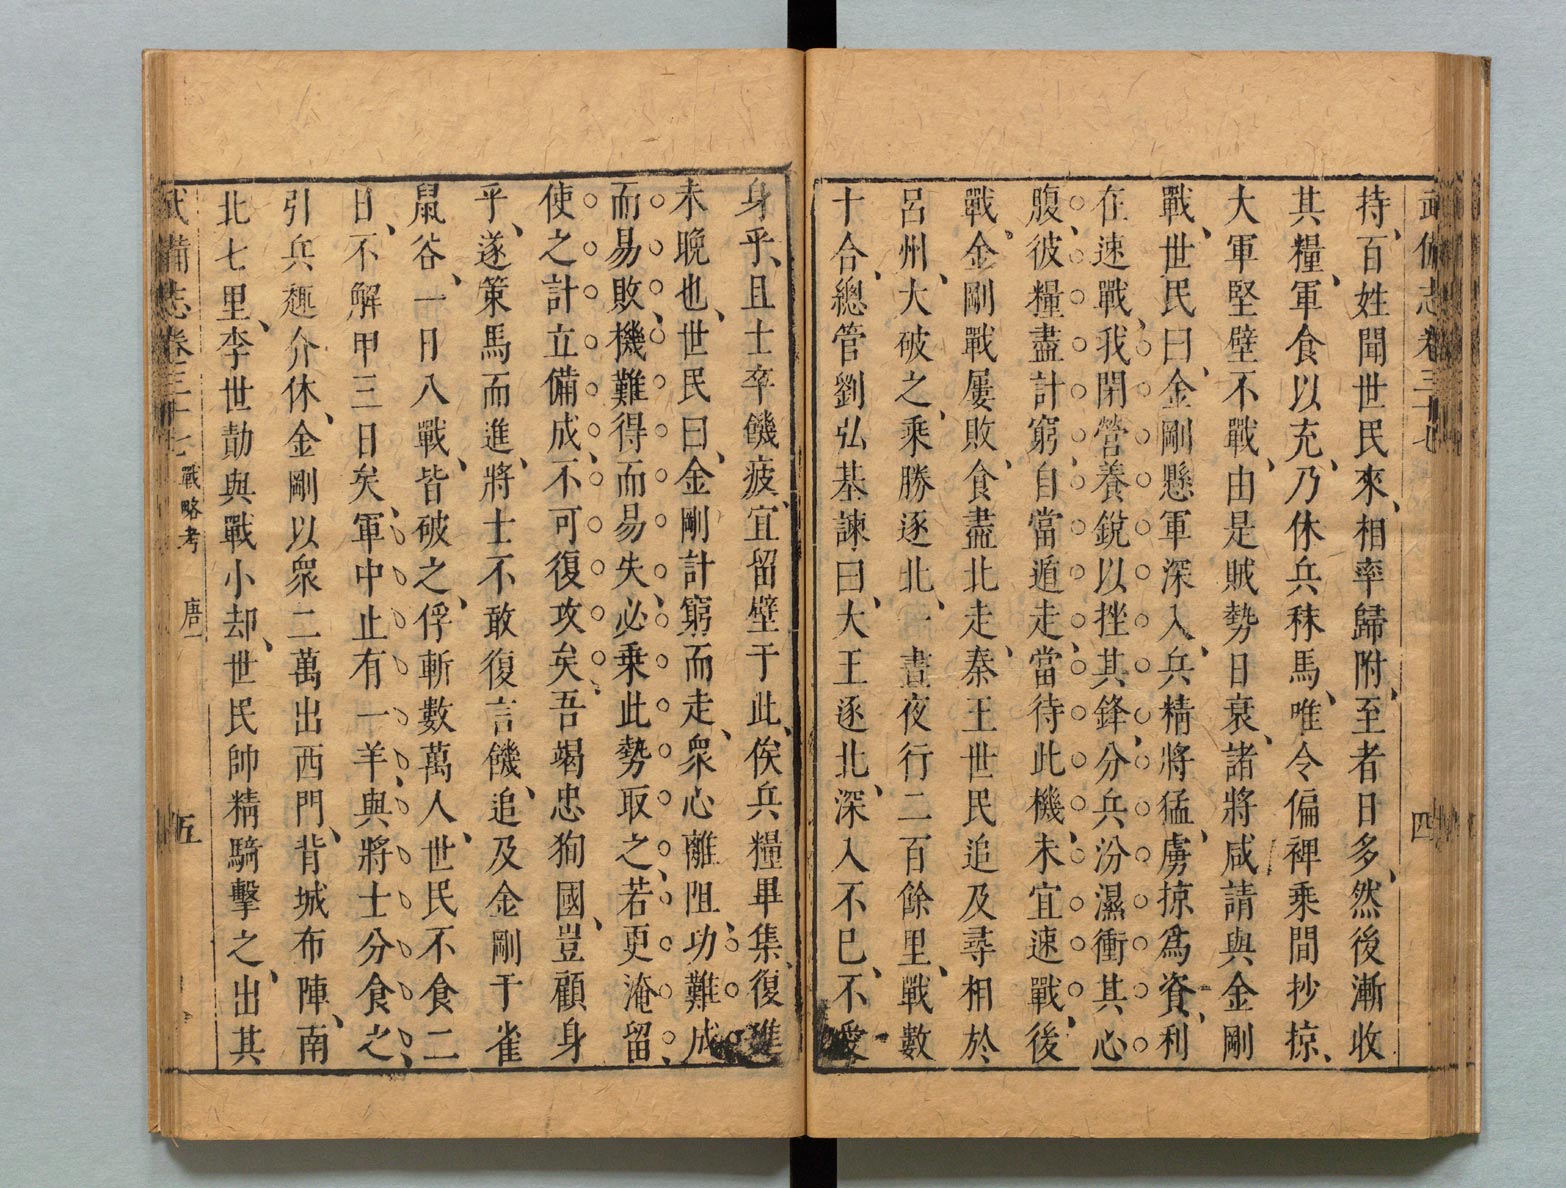 武備志卷三十七
四
持、百姓聞世民來、相率歸附、至者日多、然後漸收
其糧、軍食以充、乃休兵秣馬、唯令偏裨乘間抄掠、
大軍堅壁不戰、由是賊勢日衰、諸將咸請與金剛
戰、世民曰、金剛懸軍深入、兵精將猛、虜掠爲資、利
在速戰、我閉營養銳以挫其鋒、分兵汾濕衝其心
腹、彼糧盡計窮、自當遁走、當待此機、未宜速戰、後
戰、金剛戰屢敗、食盡北走、秦王世民追及尋相於
呂州、大破之、乘勝逐北、一晝夜行二百餘里、戰數
十合、總管劉弘基諫曰、大王逐北、深入不已、不愛
身乎、且士卒饑疲、宜留壁于此、俟兵糧畢集、復進
未晚也、世民曰、金剛計窮而走、衆心離阻、功難成
而易敗、機難得而易失、必乗此勢取之、若更淹留、
使之計立備成、不可復攻矣、吾竭忠狥國、豈顧身
乎、遂策馬而進、將士不敢復言饑、追及金剛于雀
鼠谷、一日八戰、皆破之、俘斬數萬人、世民不食二
日、不解甲三日矣、軍中止有一羊、與將士分食之、
引兵趣介休、金剛以衆二萬出西門、背城布陣、南
北七里、李世勣與戰小却、世民帥精騎擊之、出其
武備志卷三十七 戰略考 唐一
五